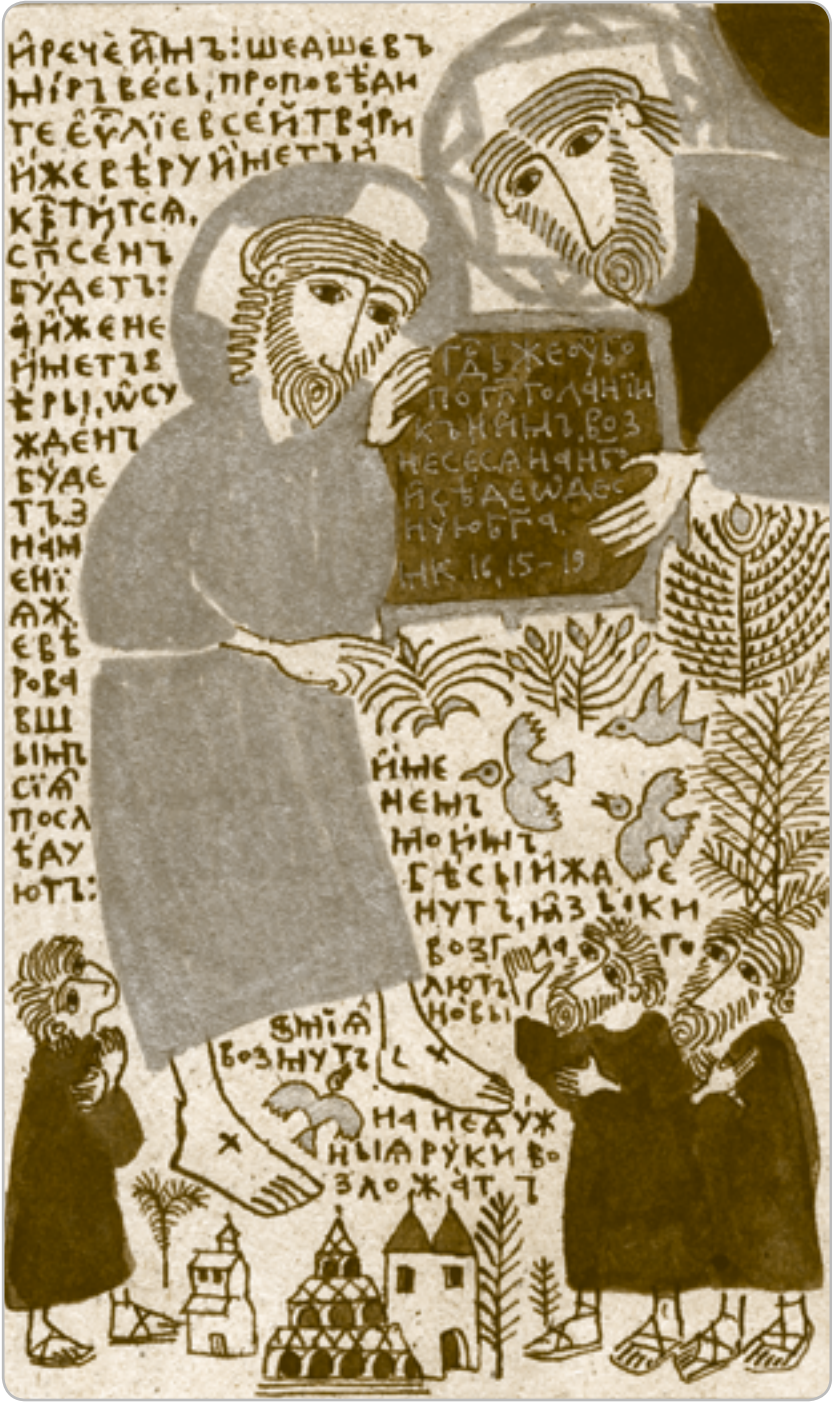 И҆РЕЧЕ И҆МЪ: ШЕДШЕ ВЪ
МІРЪ ВЕСЬ, ПРОПОВѢДИ
ТЕ ЕѴ҃ЛІЕ ВСЕЙ ТВАРИ
И҆ЖЕ ВѢРУ И҆МЕТЪ И
КР҃ТИТСѦ,
СП҃СЕНЪ
БУ́ДЕТЪ:
А҆ И҆ЖЕ НЕ
И҆МЕТЪ В
ѢРЫ, Ѡ҆СУ
ЖДЕ́НЪ
БУ́ДЕ
ТЪ. З
НАМ
ЕНІ
ѦЖ
ЕВѢ
РОВА
ВШ
ЫМЪ
СІѦ
ПОСЛ
ѢДУ
ЮТЪ:
ГД҃Ь ЖЕ ОУБО
ПО ГЛ҃ГОЛАНІИ
КЪ НИМЪ, ВОЗ
НЕСЕСѦ НА НБ҃
И҆ СѢДЕ Ѡ ДЕС
НУЮ БГ҃А.
МК. 16, 15–19
И҆МЕ
НЕМЪ
МОИ҆МЪ
БѢСЫ И҆ЖДЕ
НУТЪ, ІАЗЫКИ
ВОЗГЛАГО
ЛЮТЪ
НОВЫ
ЅМІѦ
ВОЗМУТЪ
НА НЕДУ́Ж
НЫѦ РУ́КИ ВО
ЗЛОЖАТЪ